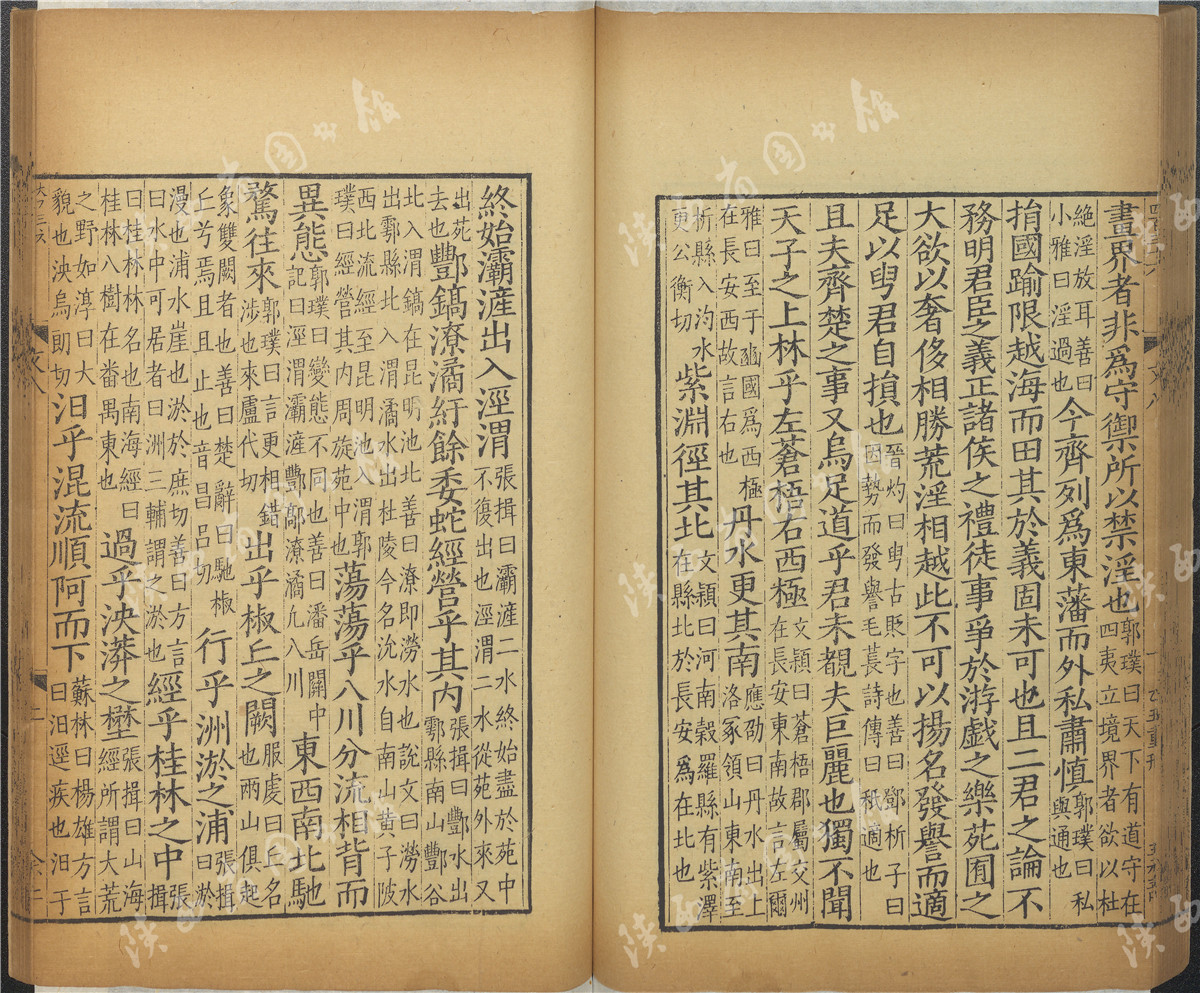 畫界者非爲守禦所以禁淫也郭璞曰天下有道守在四夷立境界者欲以杜
絶淫放耳善曰小雅曰淫過也今齊列爲東藩而外私肅慎郭璞曰私與通也
捐國踰限越海而田其於義固未可也且二君之論不
務明君臣之義正諸侯之禮徒事爭於游戲之樂苑囿之
大欲以奢侈相勝荒淫相越此不可以揚名發譽而適
足以叟君自損也晉灼曰叟古貶字也善曰鄧析子曰因勢而發譽毛萇詩傳曰秖適也
且夫齊楚之事又烏足道乎君未覩夫巨麗也獨不聞
天子之上林乎左蒼梧右西極文穎曰蒼梧郡屬交州在長安東南故言左爾
雅曰至于豳國爲西極在長安西故言右也丹水更其南應劭曰丹水出上洛冢領山東南至
析縣入汮水更公衡切紫淵徑其北文穎曰河南穀羅縣有紫澤在縣北於長安爲在北也
終始灞滻出入涇渭張揖曰灞滻二水終始盡於苑中不復出也涇渭二水從苑外來又
出苑去也酆鎬潦潏紆餘委蛇經營乎其內張揖曰酆水出鄠縣南山酆谷
北入渭鎬在昆明池北善曰潦即澇水也說文曰澇水出鄠縣北入渭潏水出杜陵今名沇水自南山黃子陂
西北流經至昆明池入渭郭璞曰經營其內周旋苑中也蕩蕩乎八川分流相背而
異態郭璞曰變態不同也善曰潘岳關中記曰涇渭灞滻酆鄗潦潏凡八川東西南北馳
騖往來郭璞曰言更相錯涉也來盧代切出乎椒丘之闕服虔曰丘名也兩山俱起
象雙闕者也善曰楚辭曰馳椒丘兮焉且且止也音昌呂切行乎洲淤之浦張揖曰淤
漫也浦水崖也淤於庶切善曰方言曰水中可居者曰洲三輔謂之淤也經乎桂林之中張揖
曰桂林林名也南海經曰桂林八樹在番禺東也過乎泱漭之壄張揖曰山海經所謂大荒
之野如淳曰大貌也泱烏朗切汩乎混流順阿而下蘇林曰楊雄方言曰汩逕疾也汩于